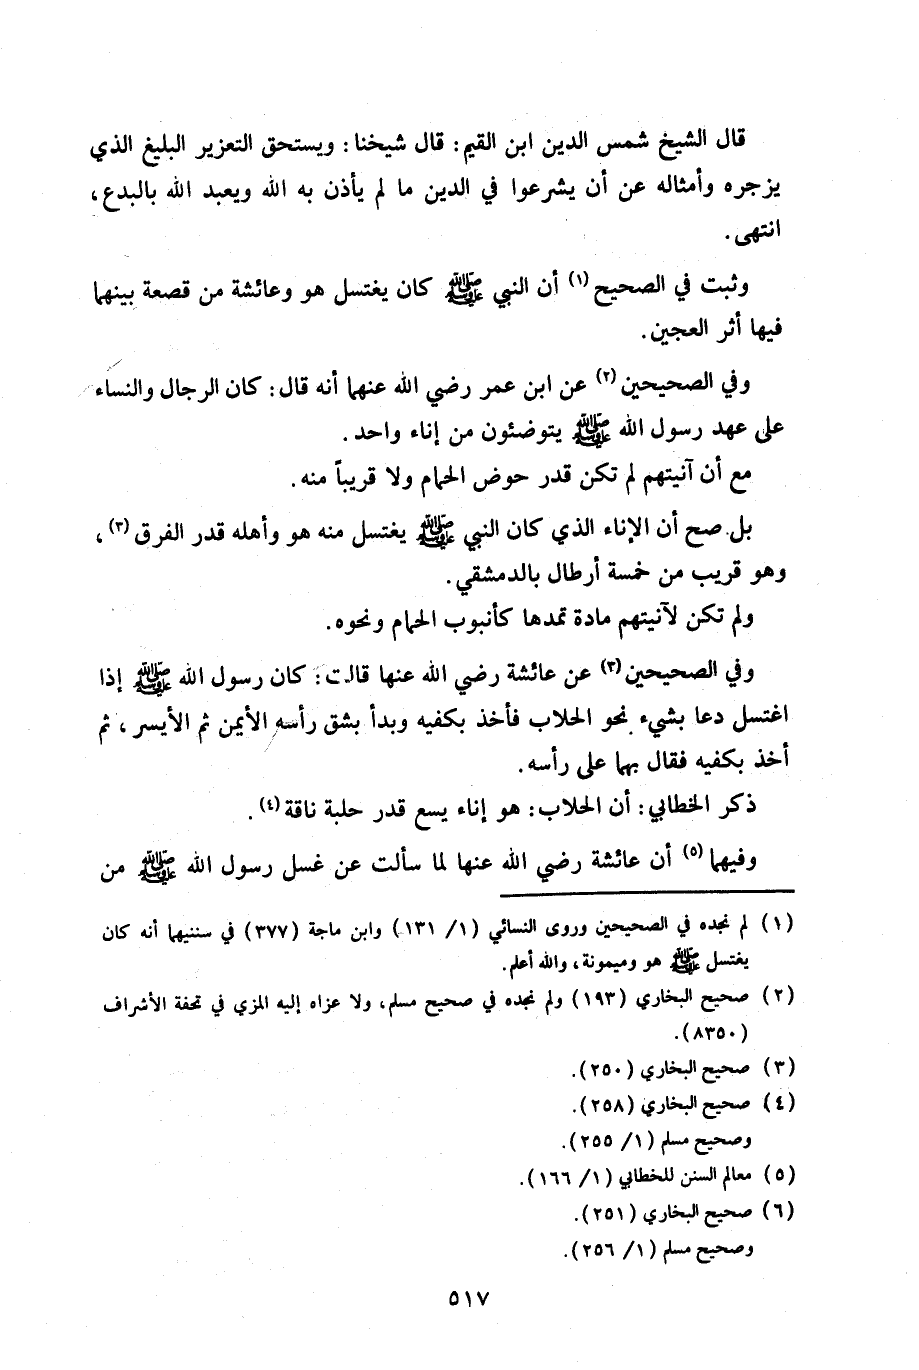 قال الشيخ شمس الدين ابن القيم: قال شيخنا: ويستحق التعزير البليغ الذي
يزجره وأمثاله عن أن يشرعوا في الدين ما لم يأذن به الله ويعبد الله بالبدع،
انتهى.
وثبت في الصحيح (١) أن النبي ﷺ كان يغتسل هو وعائشة من قصعة بينهما
فيها أثر العجين.
وفي الصحيحين (٢) عن ابن عمر رضي الله عنهما أنه قال: كان الرجال والنساء
على عهد رسول الله ﷺ يتوضئون من إناء واحد.
مع أن آنيتهم لم تكن قدر حوض الحمام ولا قريباً منه.
بل صح أن الإناء الذي كان النبي ﷺ يغتسل منه هو وأهله قدر الفرق (٣)،
وهو قريب من خمسة أرطال بالدمشقي.
ولم تكن لآنيتهم مادة تمدها كأنبوب الحمام ونحوه.
وفي الصحيحين (٣) عن عائشة رضي الله عنها قالت: كان رسول الله ﷺ إذا
اغتسل دعا بشيء نحو الحلاب فأخذ بكفيه وبدأ بشق رأسه الأيمن ثم الأيسر، ثم
أخذ بكفيه فقال بهما على رأسه.
ذكر الخطابي: أن الحلاب: هو إناء يسع قدر حلبة ناقة (٤).
وفيهما (٥) أن عائشة رضي الله عنها لما سألت عن غسل رسول الله ﷺ من
(١) لم نجده في الصحيحين وروى النسائي (١/ ١٣١) وابن ماجة (٣٧٧) في سننيهما أنه كان
يغتسل ﷺ هو وميمونة، والله أعلم.
(٢) صحيح البخاري (١٩٣) ولم نجده في صحيح مسلم، ولا عزاه إليه المزي في تحفة الأشراف
(٨٣٥٠).
(٣) صحيح البخاري (٢٥٠).
(٤) صحيح البخاري (٢٥٨).
وصحيح مسلم (١/ ٢٥٥).
(٥) معالم السنن للخطابي (١/ ١٦٦).
(٦) صحيح البخاري (٢٥١).
وصحيح مسلم (١/ ٢٥٦).
٥١٧